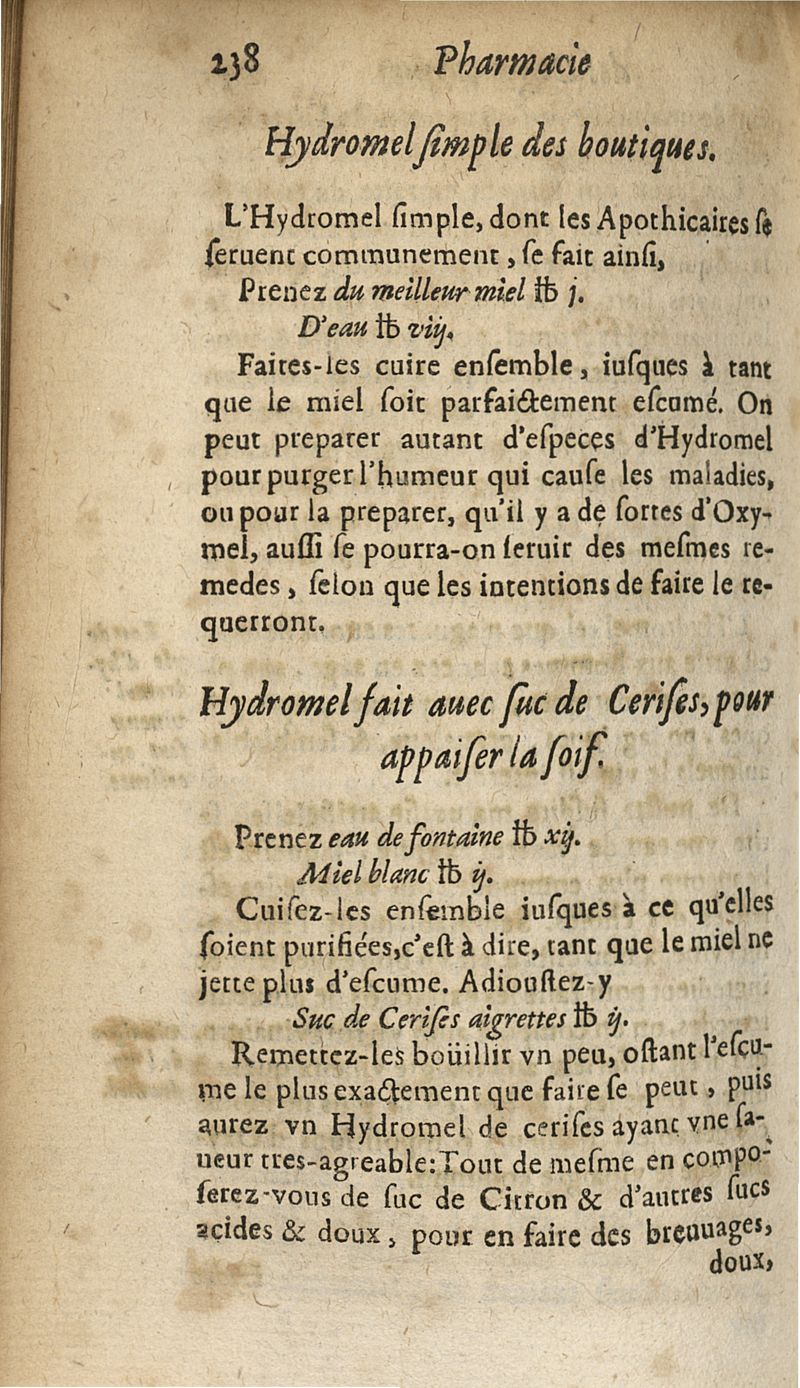 238 Pharmacie
Hydromel ſimple des boutiques.
L'Hydromel ſimple, dont les Apothicaires ſe
ſeruent communement, ſe fait ainſi,
Prenez du meilleur miel ℔ j.
D'eau ℔ viij.
Faites-les cuire enſemble, iuſques à tant
que le miel ſoit parfaictement eſcumé. On
peut preparer autant d'eſpeces d'Hydromel
pour purger l'humeur qui cauſe les maladies,
ou pour la preparer, qu'il y a de ſortes d'Oxy-
mel, auſſi ſe pourra-on ſeruir des meſmes re-
medes, ſelon que les intentions de faire le re-
querront.
Hydromel fait auec ſuc de Ceriſes, pour
appaiſer la ſoif.
Prenez eau de fontaine ℔ xij.
Miel blanc ℔ ij.
Cuiſez-les enſemble iuſques à ce qu'elles
ſoient purifiées, c'eſt à dire, tant que le miel ne
jette plus d'eſcume. Adiouſtez-y
Suc de Ceriſes aigrettes ℔ ij.
Remettez-les boüillir vn peu, oſtant l'eſcu-
me le plus exactement que faire ſe peut, puis
aurez vn Hydromel de ceriſes ayant vne ſa-
ueur tres-agreable: Tout de meſme en compo-
ſerez-vous de ſuc de Citron & d'autres ſucs
acides & doux, pour en faire des breuuages,
doux,